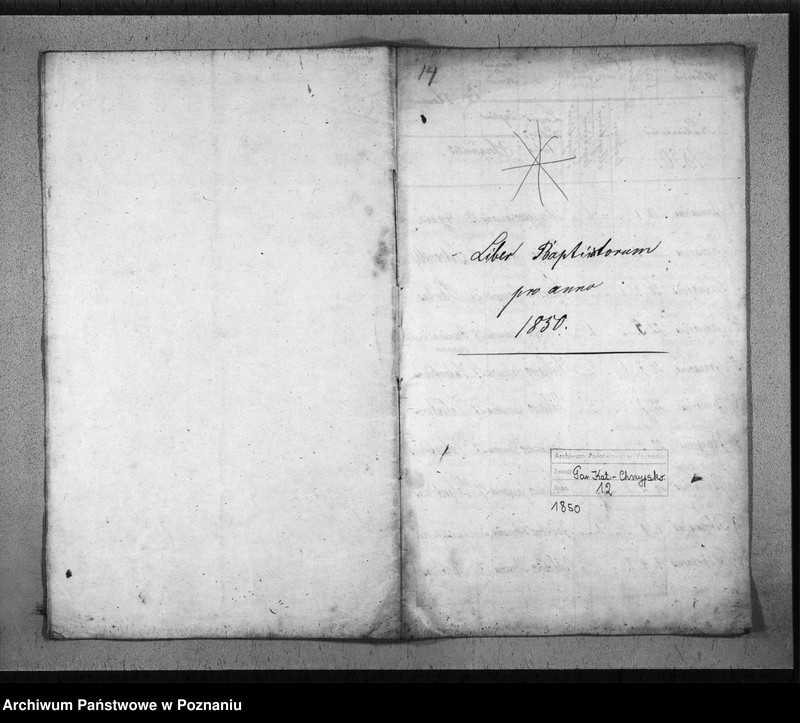 14
Liber Baptistorum
pro anno
1850.
Archiwum Państwowe w Poznaniu
Zespół Par. Kat. - Chrypsko
Sygn. 12
1850
Archiwum Państwowe w Poznaniu